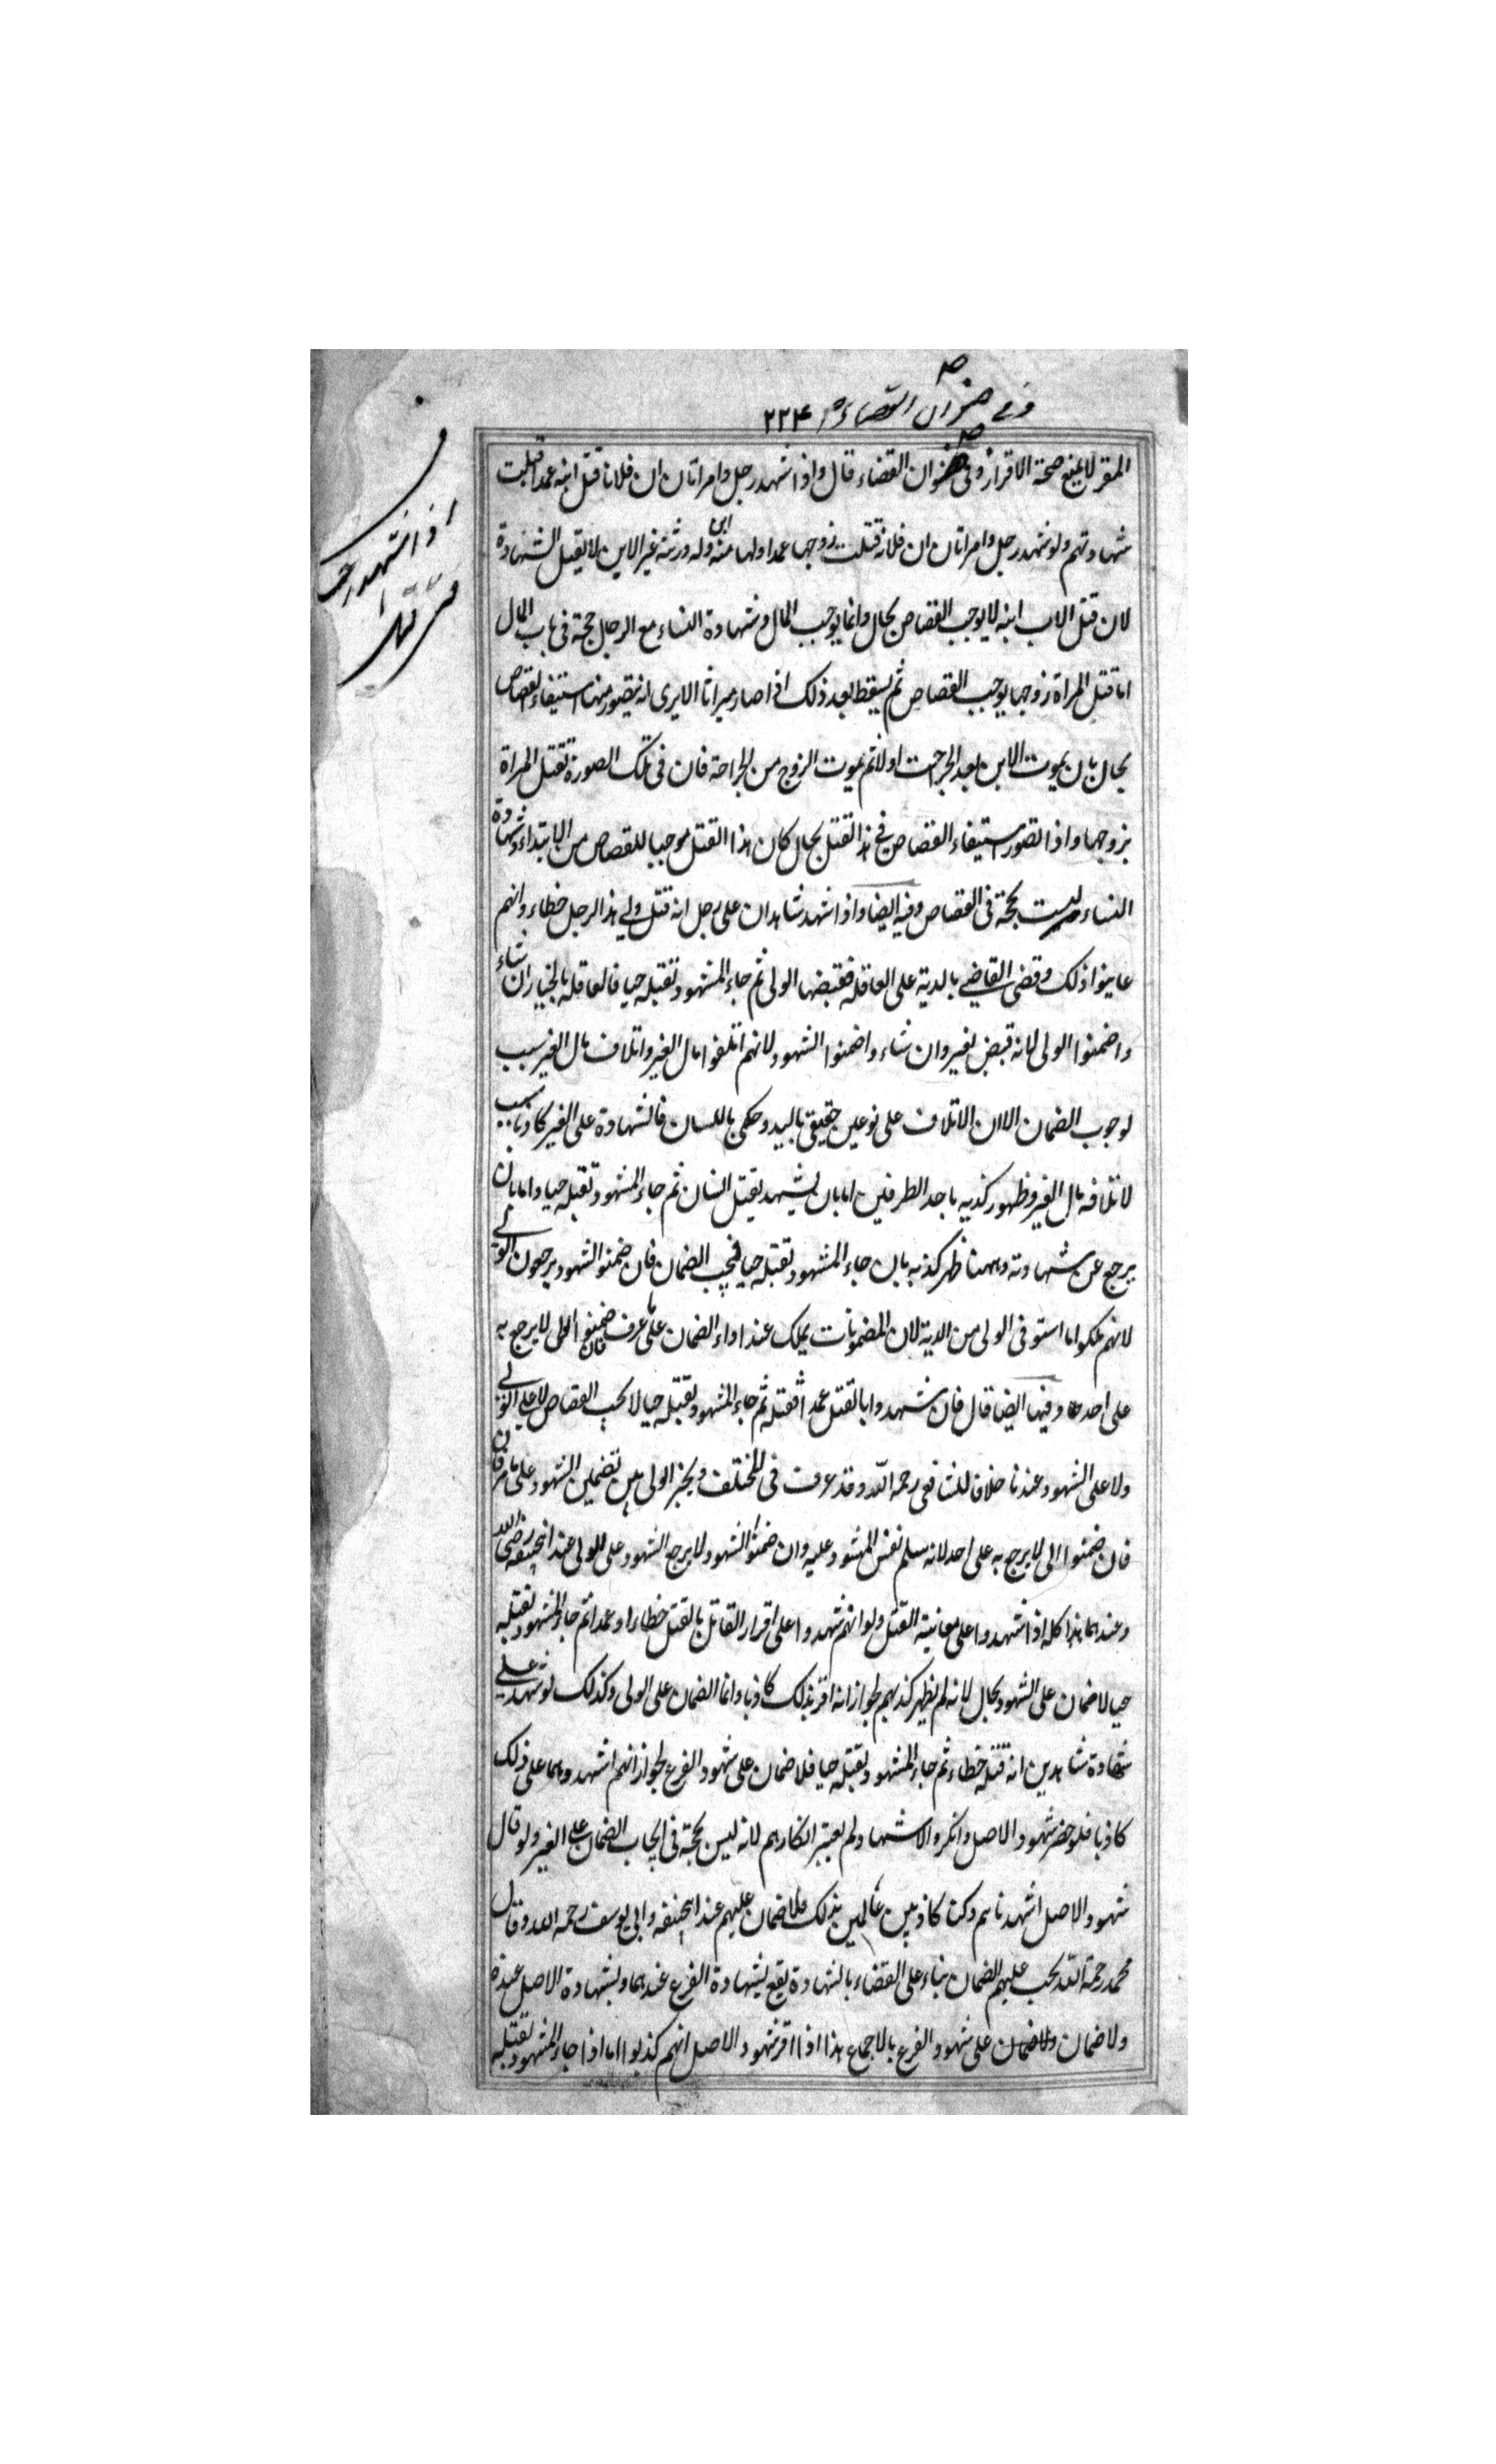 وفي صنوان القضاء ۲۲۴
المقر لا يمنع صحة الاقرار وفى صنوان القضاء قال واذا شهد رجل وامراتان ان فلانا قتل ابنه عمدا قبلت
شهادتهم ولو شهد رجل وامراتان ان فلانة قتلت زوجها عمدا ولها منه ابن وله ورثة غير الابن لا يقبل الشهادة
لان قتل الاب ابنه لا يوجب القصاص بحال وانما يوجب المال وشهادة النساء مع الرجال حجة فى باب المال
اما قتل المراة زوجها يوجب القصاص ثم يسقط بعد ذلك اذا صار ميراثا الا يرى انه يتصور منها استيفاء القصاص
بحال بان يموت الابن بعد الجرحت اولا ثم يموت الزوج من الجراحة فان فى تلك الصورة تقتل المراة
بزوجها واذا تصور استيفاء القصاص فى هذا القتل بحال كان هذا القتل موجبا للقصاص من الابتداء وشهادة
النساء ليست بحجة فى القصاص وفيه ايضا واذا شهد شاهدان على رجل انه قتل ولى هذا الرجل خطاء وانهم
عاينوا ذلك وقضى القاضى بالدية على العاقلة فقبضها الولى ثم جاء المشهود بقتله حيا فالعاقلة بالخيار ان شاء
واضمنوا الولى لانه قبض بغير وان شاء واضمنوا الشهود لانهم اتلفوا مال الغير واتلاف مال الغير سبب
لوجوب الضمان الا ان الاتلاف على نوعين حقيقى باليد وحكمى باللسان فالشهادة على الغير كاذبا سبب
لاتلافه مال الغير وظهور كذبه باحد الطرفين اما بان يشهد بقتل انسان ثم جاء المشهود بقتله حيا واما بان
يرجع عن شهادته وههنا ظهر كذبه بان جاء المشهود بقتله حيا فيجب الضمان فان ضمنوا الشهود يرجعون الولى
لانهم ملكوا ما استوفى الولى من الدية لان المضمونات يملك عند اداء الضمان على ما عرف فان ضمنوا الولى لا يرجع به
على احد وفيها ايضا قال فان شهدوا بالقتل عمدا فقتله ثم جاء المشهود بقتله حيا لا يجب القصاص لا على الولى
ولا على الشهود عندنا خلافا للشافعى رحمه الله وقد عرف فى المختلف ويخير الولى بين تضمين الشهود على ما مر فان
فان ضمنوا الى لا يرجع به على احد لانه سلم نفس المشهود عليه وان ضمنوا الشهود لا يرجع الشهود على الولى عند ابيحنيفه رضى الله
وعندهما هذا كله اذا شهدوا على معاينة القتل ولو انهم شهدوا على اقرار القاتل بالقتل خطاء او عمدا ثم جاء المشهود بقتله
حيا لا ضمان على الشهود بحال لانه لم يظهر كذبهم لجواز انه اقر بذلك كاذبا وانما الضمان على الولى وكذلك لو شهد على
شهادة شاهدين انه قتله خطاء ثم جاء المشهود بقتله حيا فلا ضمان على شهود الفرع لجواز انهم اشهدوهما على ذلك
كاذبا فلو حضر شهود الاصل وانكروا الاشهاد لم يعتبر انكارهم لانه ليس بحجة فى ايجاب الضمان على الغير ولو قال
شهود الاصل اشهدناهم وكنا كاذبين عالمين بذلك فلا ضمان عليهم عند ابيحنيفه وابى يوسف رحمه الله وقال
محمد رحمة الله يجب عليهم الضمان بناء على القضاء بالشهادة يقع بشهادة الفرع عندهما وبشهادة الاصل عنده
ولا ضمان ولاضمان على شهود الفرع بالاجماع هذا اذا اقر شهود الاصل انهم كذبوا اما اذا جاء المشهود بقتله
ف
اذا شهد رجل